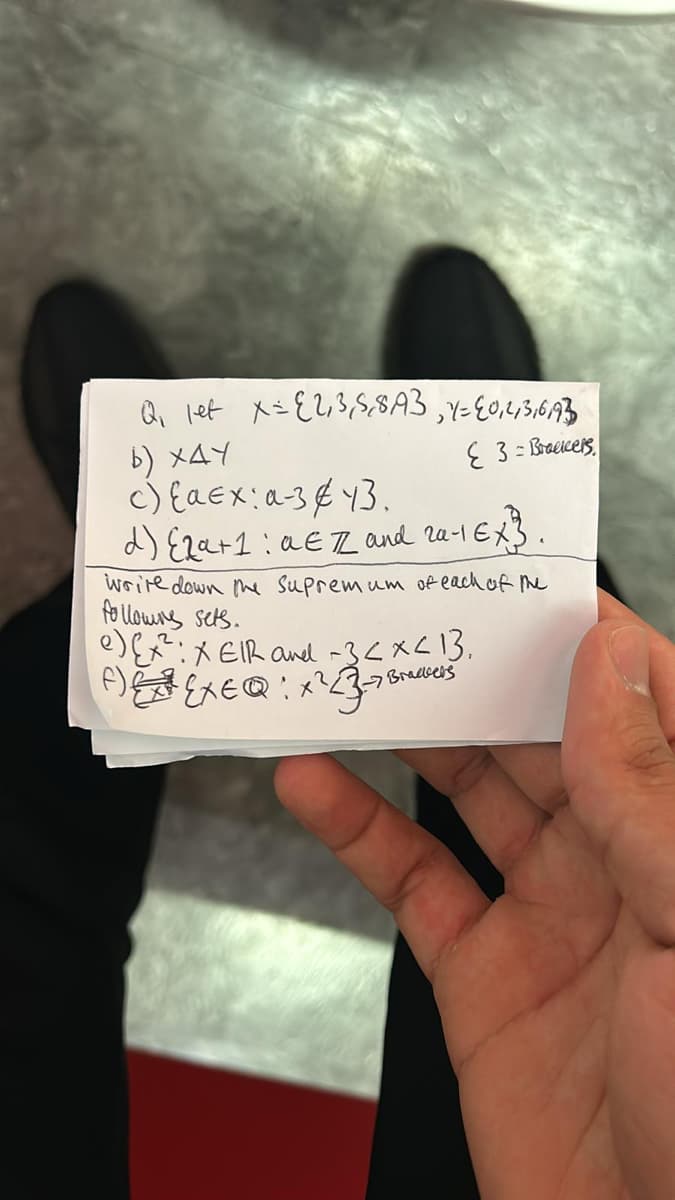 Q, let x = {2,3,5,8,9}, Y = {0,2,3,6,9}
b) XΔY
{ } = Brackets.
c) {a∈X: a-3 ∉ Y}.
d) {2a+1 : a∈ℤ and 2a-1 ∈X}.
write down the supremum of each of the
following sets.
e) {x²: x ∈ℝ and -3<x<1}.
f) {x∈ℚ : x²<} → Brackets